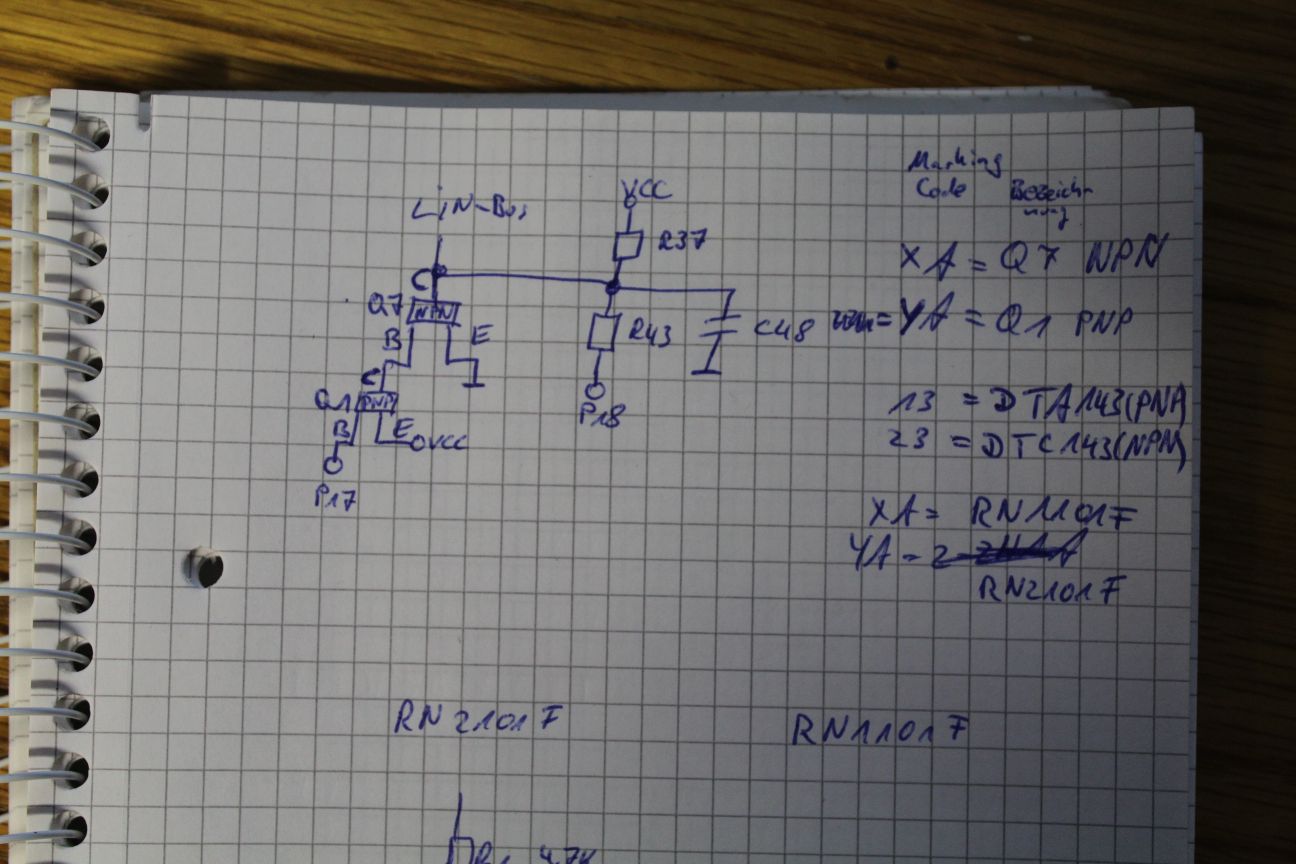 Marking
Code
Bezeich-
nung
LiN-Bus
VCC
R37
XA = Q7 NPN
C
Q7
NPN
B
E
R43
C48
= YA = Q1 PNP
C
Q1
PNP
B
E
VCC
P18
13 = DTA143(PNP)
23 = DTC143(NPN)
P17
XA = RN1101F
YA =
RN2101F
RN2101F
RN1101F
R1 4.7K